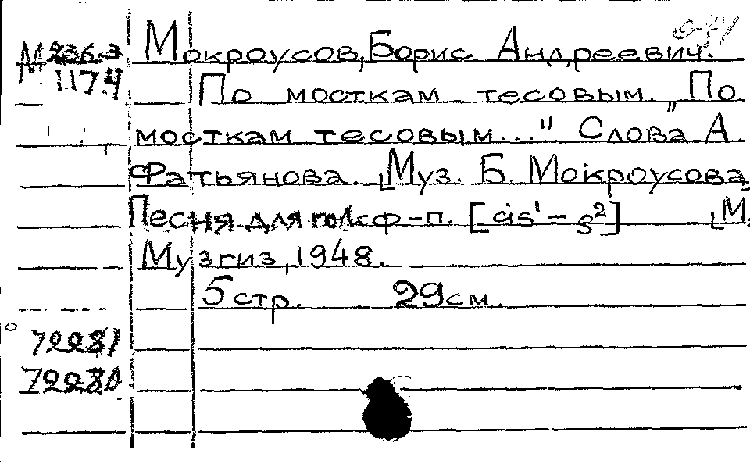 Мокроусов, Борис Андреевич.
М 236.3
117.4
По мосткам тесовым. „По
мосткам тесовым..." Слова А.
Фатьянова. [Муз. Б. Мокроусова]
Песня для гол. с ф-п. [cis¹ – s²] [М.]
Музгиз, 1948.
5 стр. 29 см.
72281
72280